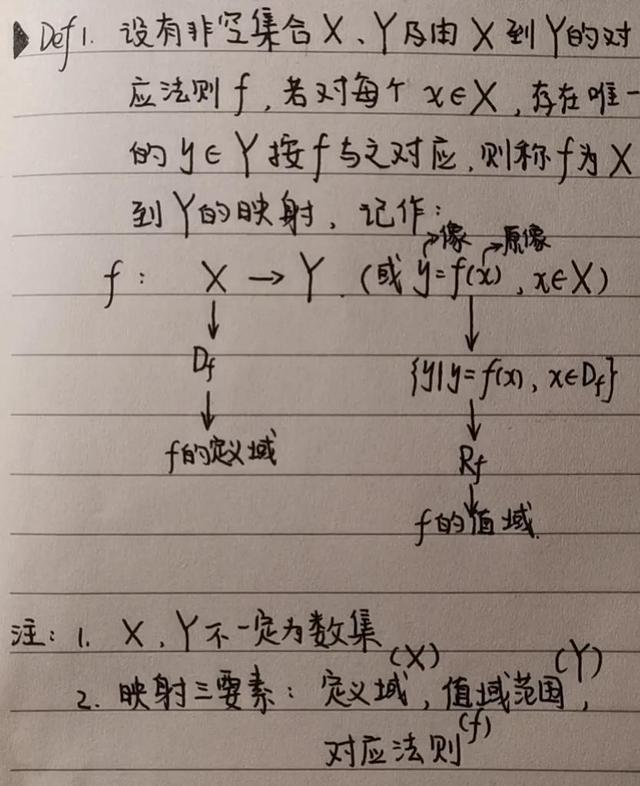 Def1. 设有非空集合 X、Y及由 X 到 Y的对
应法则 f, 若对每个 x∈X, 存在唯一
的 y∈Y 按 f 与之对应, 则称 f 为 X
到 Y的映射, 记作:
像 原像
f: X → Y. (或 y=f(x), x∈X)
Df {y|y=f(x), x∈Df}
f的定义域 Rf
f的值域.
注: 1. X, Y不一定为数集
(X) (Y)
2. 映射三要素: 定义域, 值域范围,
对应法则(f)